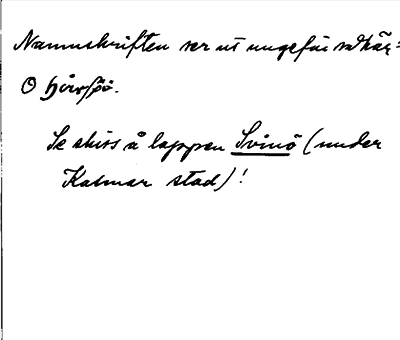 Namnskriften ser ut ungefär så här:
O
Se skiss å lappen Svinö (under
Kalmar stad)!